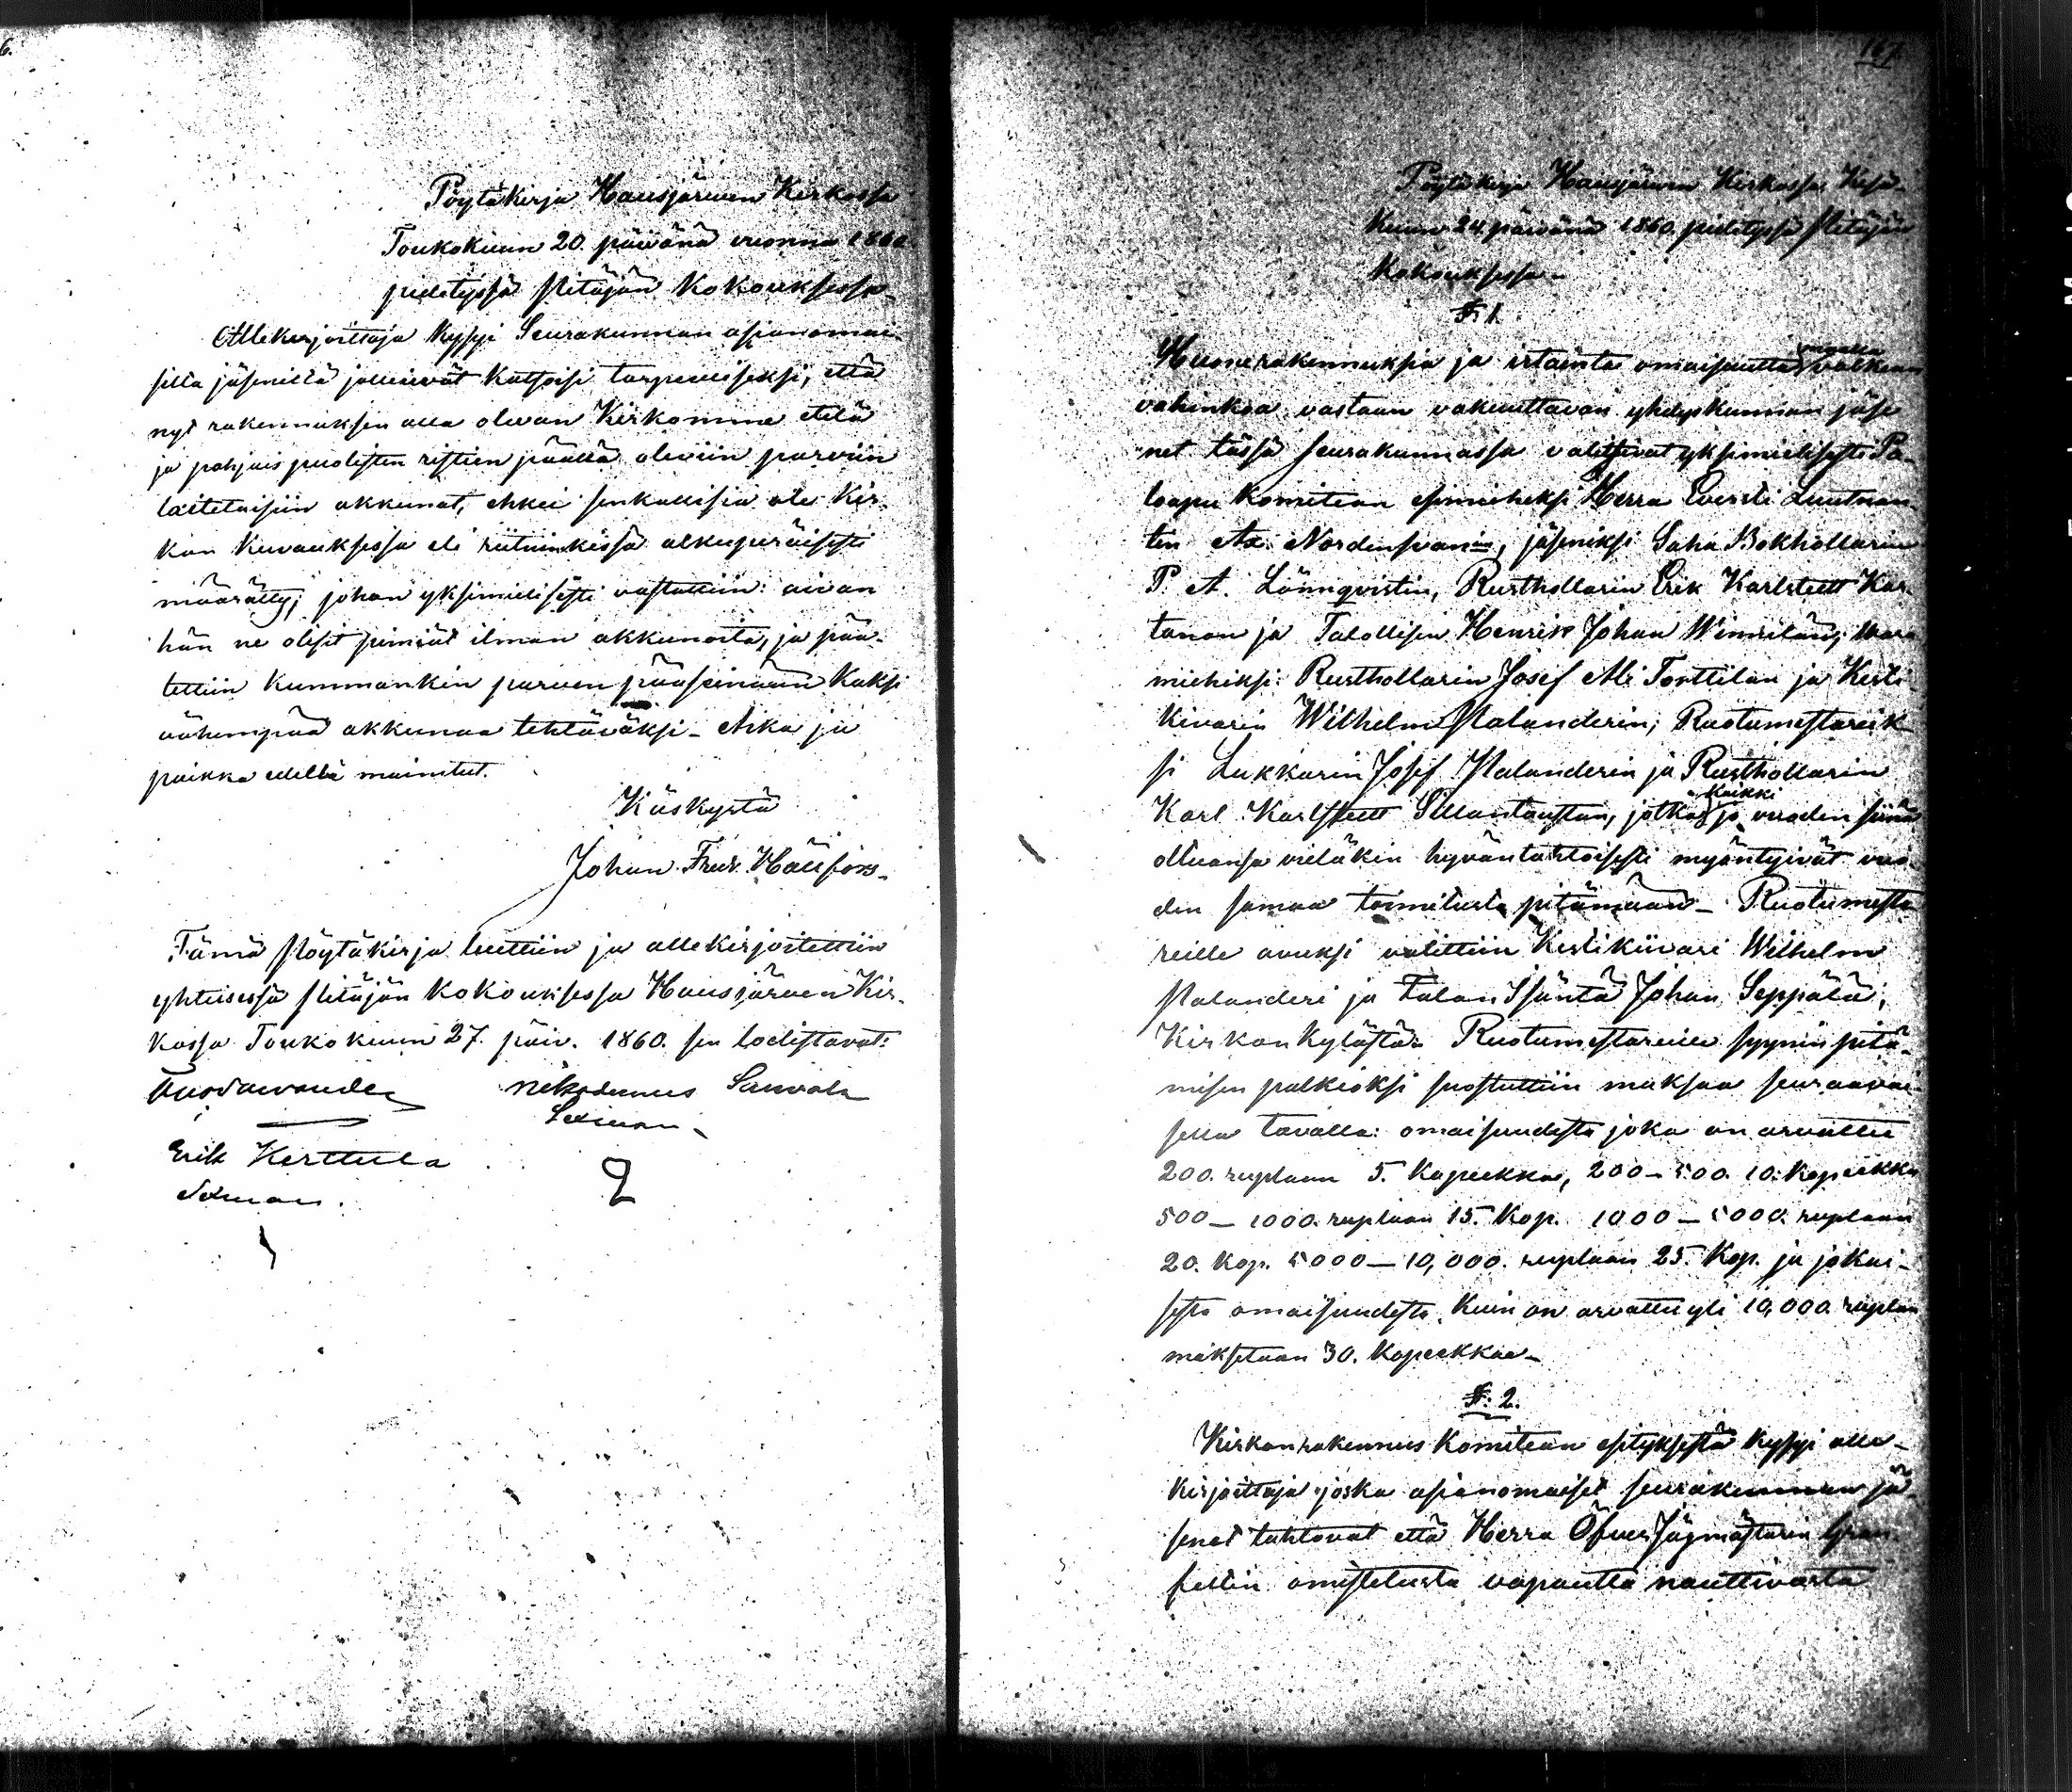 6.
Pöytäkirja Hausjärwen Kirkossa
Toukokuun 20. päiwänä vuonna 1860
pidetyssä Pitäjän Kokouksessa_
Allekirjoittaja kysyi Seurakunnan asianomai-
silta jäseniltä jolleivät katsoisi tarpeelliseksi, että
nyt rakennuksen alla olewan Kirkomme etelä
ja pohjais puolisten ristien päällä oleviin parviin
laitetaisiin akkunat, ehkei senkallisia ole Kir-
kon kuvauksessa eli riitninkissä alkuperäisesti
määrätty; johon yksimielisesti vastattiin: aivan
hän ne olisit pimiät ilman akkunoita, ja pää-
tettiin kummankin parven pääseinään Kaksi
vähempää akkunaa tehtäväksi_ Aika ja
paikka edellä mainitut.
Käskystä
Johan Fredr. Hällfors_
Tämä Pöytäkirja luettiin ja allekirjoitettiin
yhteisessä Pitäjän Kokouksessa Hausjärven Kir-
kossa Toukokuun 27. päiv. 1860. sen todistavat:
Nikodemus Sauvala
Erik Kerttula
167
Pöytäkirja Hausjärwen Kirkossa Kesä-
kuun 24 päivänä 1860. pidetyssä Pitäjän
Kokouksessa_
§ 1.
Huonerakennuksia ja irtainta omaisuutta valkian
vahinkoa vastaan vakuuttavan yhdyskunnan jäse
net tässä seurakunnassa valitsivat yksimielisesti Pa-
loapu Komitean esimieheksi Herra Eversti Luutnan-
ten Ax. Nordensvanin, jäseniksi Saha Bokhollarin
P. A. Lönnqvistin, Rusthollarin Erik Karlstedt Kar-
tanon ja Talollisen Henrik Johan ; Vara
miehiksi: Rusthollarin Josef Ali Torttilan ja Kesti-
kivarin Wilhelm Palanderin; Ruotumestareik
si Lukkarin Josef Palanderin ja Rusthollarin
Karl Karlstedt Sillantaustan, jotka kaikki jo vuoden siinä
oltuansa vieläkin hyväntahtoisesti myöntyivät vuo
den samaa toimitusta pitämään_ Ruotumesta
reille avuksi valittiin Kestikiivari Wilhelm
Palanderi ja Talon Isäntä Johan Seppälä,
Kirkonkylästä. Ruotumestareille syynin pitä-
misen palkioksi suostuttiin maksaa seuraavai-
sella tavalla: omaisuudesta joka on arvattu
200. ruplaan 5. kopeekkaa, 200_500. 10. kopeekkaa
500_1000. ruplaan 15. kop. 1000_5000. ruplaan
20. kop. 5000_10,000. ruplaan 25. kop. ja jokai-
sesta omaisuudesta kuin on arvattu yli 10,000. ruplan
maksetaan 30. kopeekkaa_
§: 2.
Kirkonrakennus Komitean esityksestä kysyi alle-
kirjoittaja joska asianomaiset seurakunnan jä-
senet tahtovat että Herra Öfver Jägmästarin Gran
feltin omistelusta vapautta nauttivasta